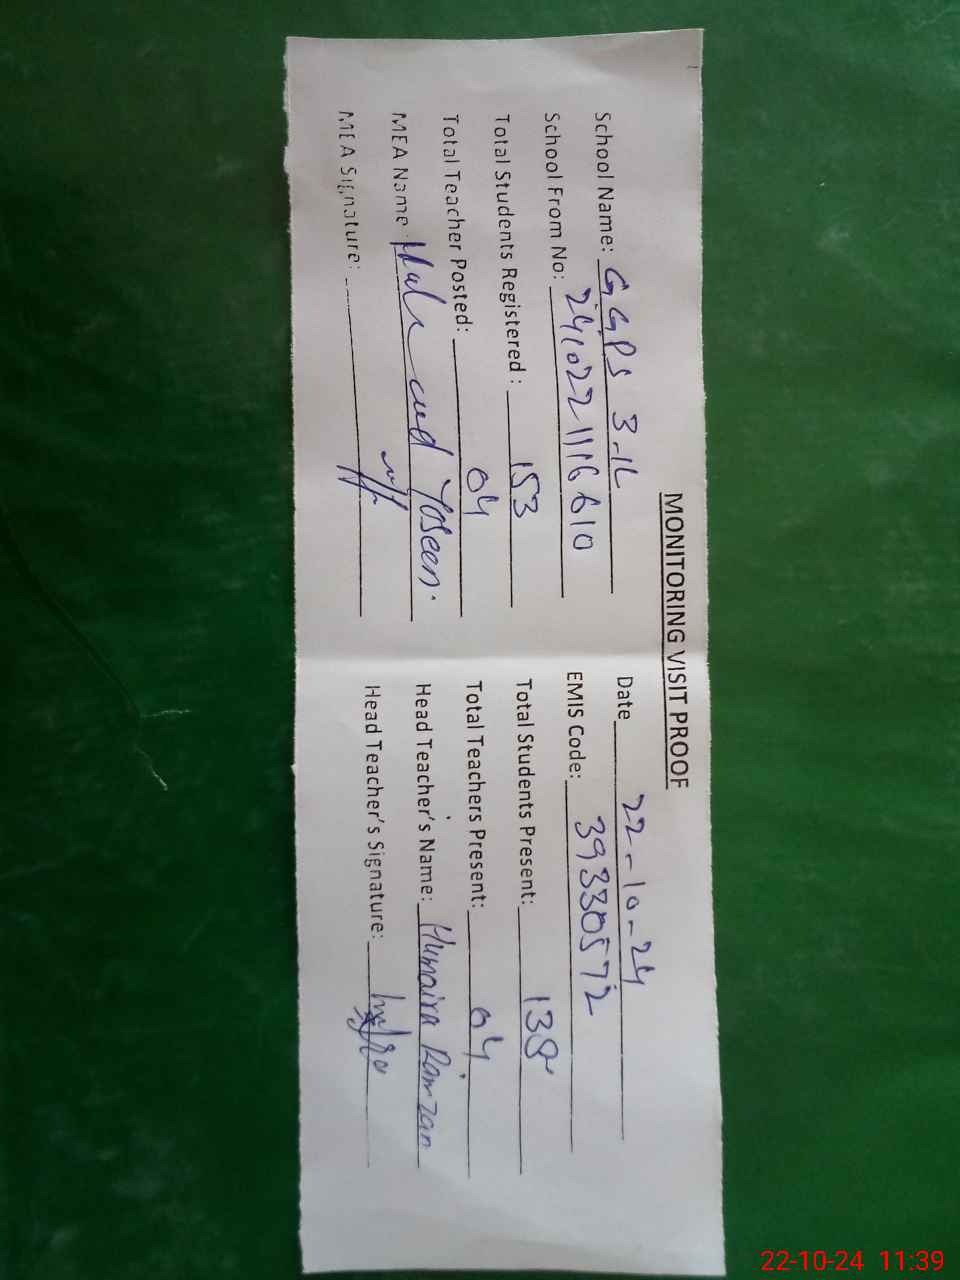 MONITORING VISIT PROOF
School Name: GGPS 3-1L Date 22-10-24
School From No: 2410221116610 EMIS Code: 39330572
Total Students Registered : 153 Total Students Present: 138
Total Teacher Posted: 04 Total Teachers Present: 04
MEA Name Head Teacher's Name: Humaira Ramzan
MEA Signature: Head Teacher's Signature:
22-10-24 11:39